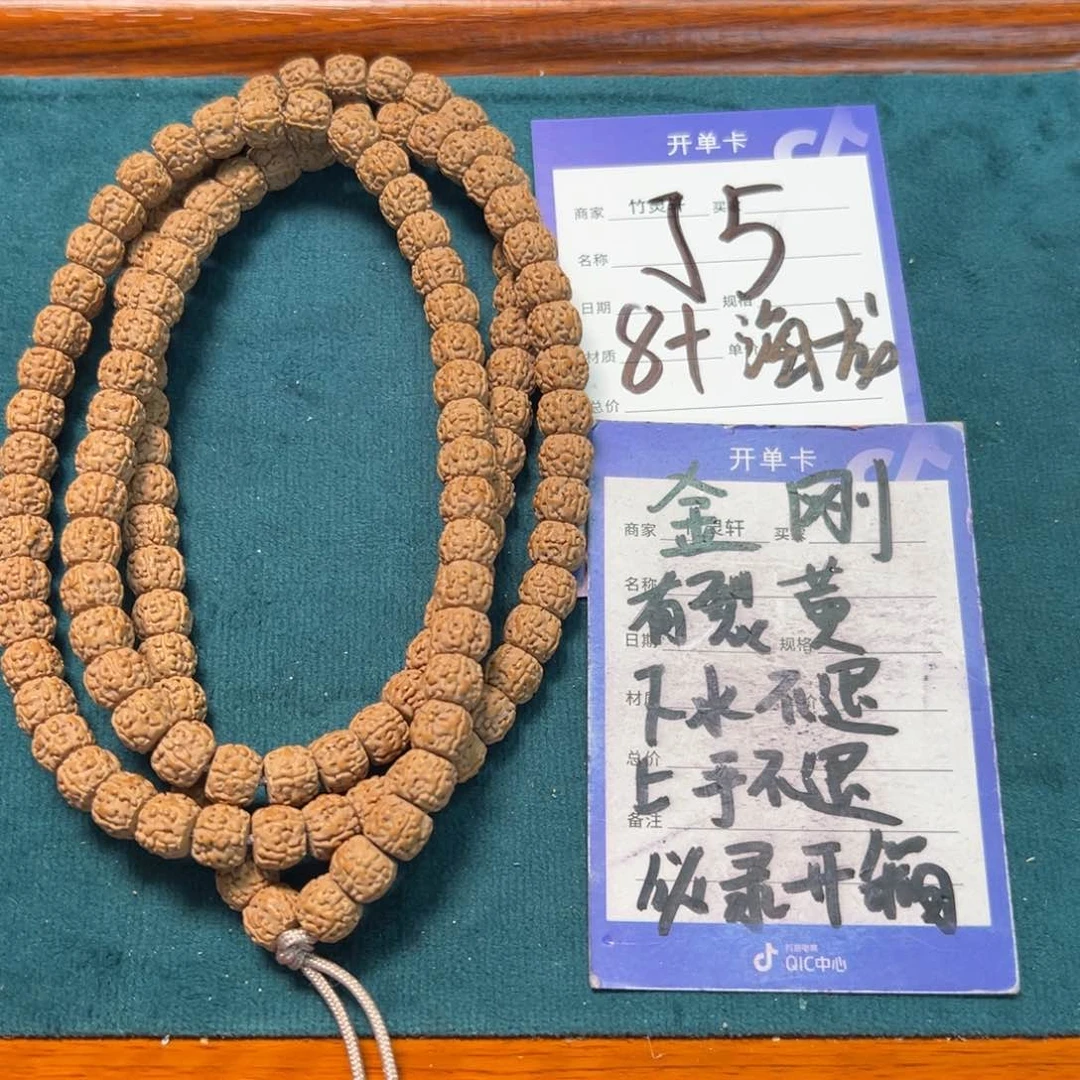 开单卡
商家 竹灵轩 买
J5
名称
日期 规格
8十 海龙
材质 单
总价
开单卡
金刚
商家 灵轩 买家
名称
有裂 黄
日期 规格
下水不退
材质 价
总价
上手不退
备注
必录开箱
抖音电商
QIC中心